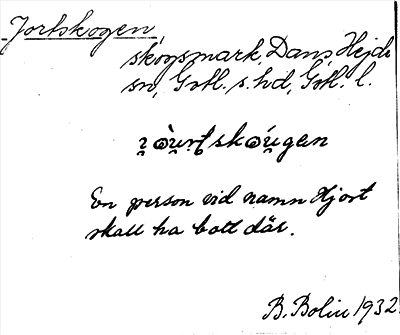 Jortskogen,
skogsmark, Dans, Hejde
sn, Gotl. s. hd, Gotl. l.
En person vid namn Hjort
skall ha bott där.
B. Bolin 1932.